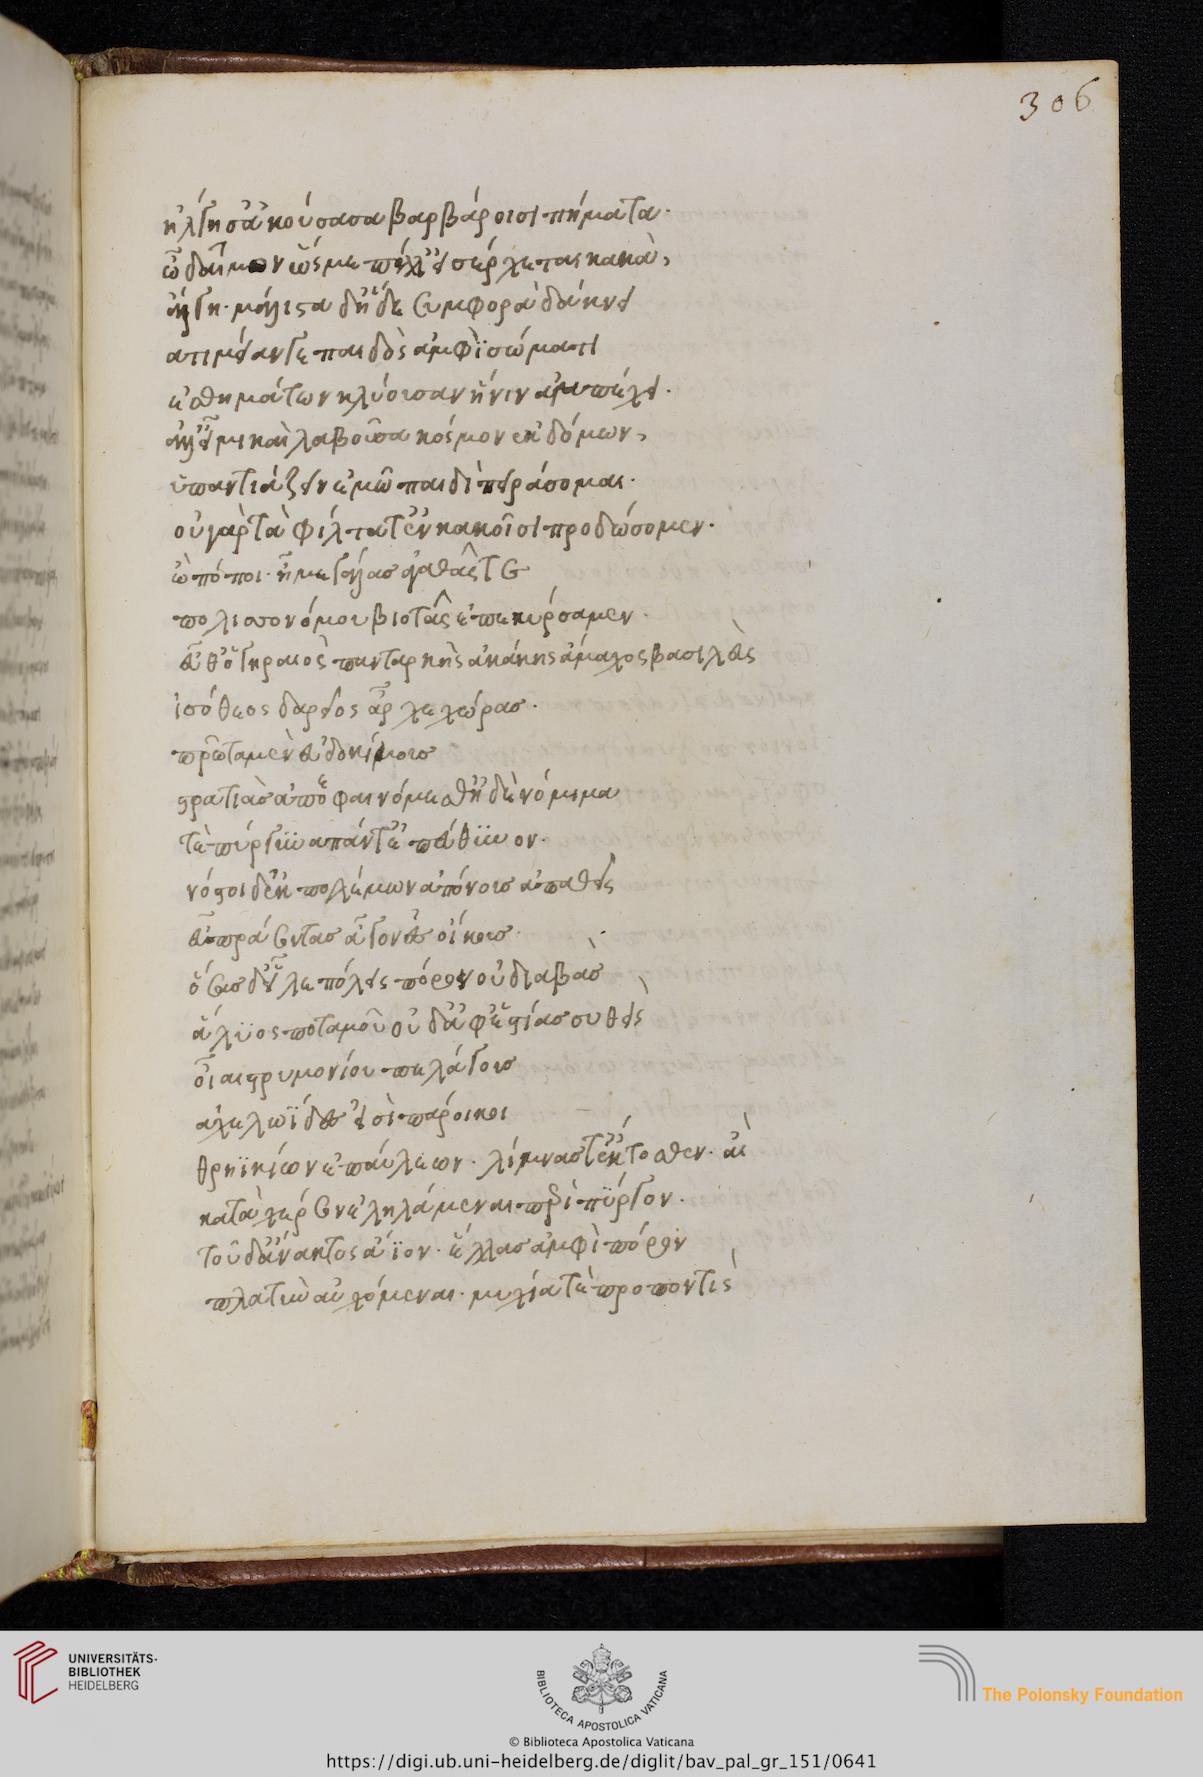 306
ἤλγησ' ἀκούσασα βαρβάροισι πήματα.
ὦ δαῖμον ὥς με πόλλ' εἰσέρχεται κακὰ,
ἄλγη· μάλιστα δ' ἥδε συμφορὰ δάκνει
ἀτιμίαν γε παιδὸς ἀμφὶ σώματι
ἐσθημάτων κλύουσαν ἥνιν ἀμπέχει.
ἀλλ' εἶμι καὶ λαβοῦσα κόσμον ἐκ δόμων,
ὑπαντιάζειν ἐμῶ παιδὶ πειράσομαι.
οὐ γὰρ τὰ φίλτατ' ἐν κακοῖσι προδώσομεν.
ὢ πόποι· ἦ μεγάλας ἀγαθᾶς τε
πολισσονόμου βιοτᾶς ἐπεκύρσαμεν.
εὖθ' ὁ γηραιὸς πανταρκὴς ἀκάκης ἄμαχος βασιλεὺς
ἰσόθεος δαρεῖος ἆρχε χώρας.
πρῶτα μὲν εὐδοκίμους
στρατιὰς ἀποφαινόμεσθ' ἠδὲ νόμιμα
νόστοι δ' ἐκ πολέμων ἀπόνους ἀπαθεῖς
εὖ πράσσοντας ἆγον ἐς οἴκους.
ὅσσας δ' εἷλε πόλεις πόρον οὐ διαβὰς
ἅλϋος ποταμοῦ οὐδ' ἀφ' ἑστίας συθεὶς
οἷαι στρυμονίου πελάγους
ἀχελωΐδες εἰσὶ πάροικοι
θρηϊκίων ἐπαύλεων. λίμνας τ' ἔκτοσθεν. αἳ
κατὰ χέρσον ἐληλάμεναι περὶ πύργον.
τοῦδ' ἄνακτος ἄϊον. ἕλλας ἀμφὶ πόρον
πλατὺν αὐχόμεναι. μυχία τὲ προποντὶς
UNIVERSITÄTS-
BIBLIOTHEK
HEIDELBERG
BIBLIOTECA APOSTOLICA VATICANA
The Polonsky Foundation
© Biblioteca Apostolica Vaticana
https://digi.ub.uni-heidelberg.de/diglit/bav_pal_gr_151/0641